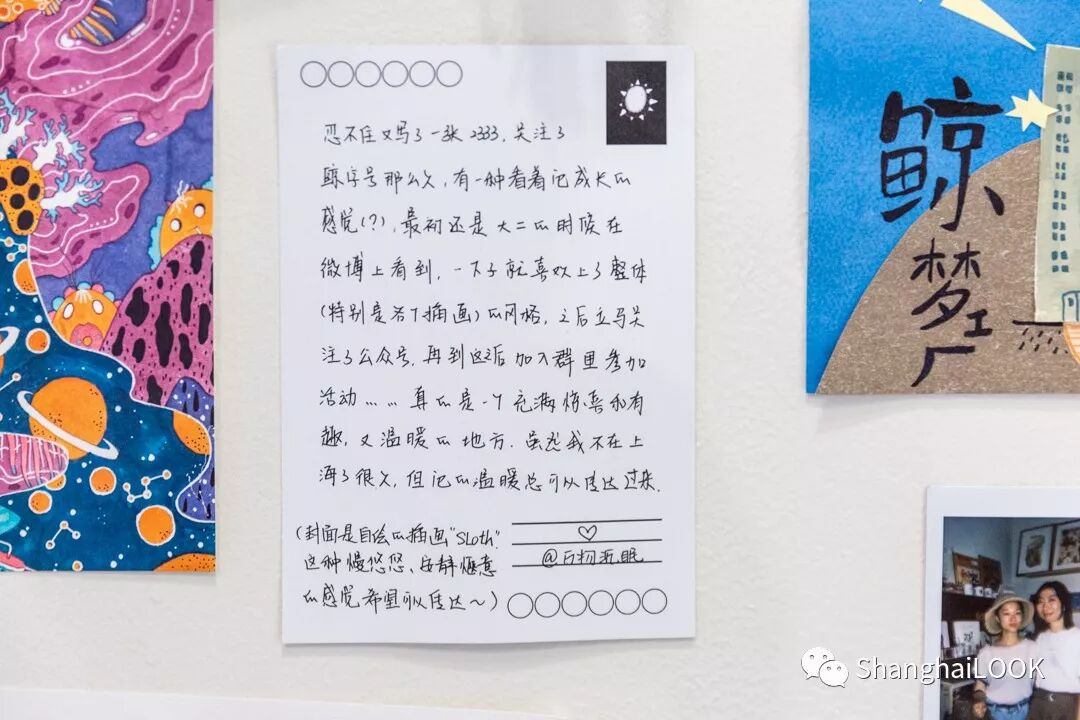 忍不住又写了一张2333，关注了
鲸字号那么久，有一种看着它成长的
感觉(?)，最初还是大二的时候在
微博上看到，一下子就喜欢上了整体
(特别是各个插画)的风格，之后立马关
注了公众号，再到这之后加入群里参加
活动……真的是一个充满惊喜和有
趣，又温暖的地方．虽然我不在上
海了很久，但它的温暖总可以传达过来．
(封面是自绘的插画"Sloth"．
这种慢悠悠、安静惬意
的感觉希望可以传达～)
@万物无眠
鲸
梦
工
厂
ShanghaiLOOK